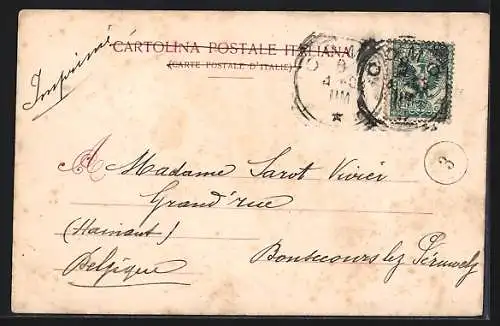 Imprimé
CARTOLINA POSTALE ITALIANA
(CARTE POSTALE D'ITALIE)
COMO
A Madame Sarot Vivier
Grand'rue
(Hainaut) Bonsecours lez Péruwelz
Belgique
3